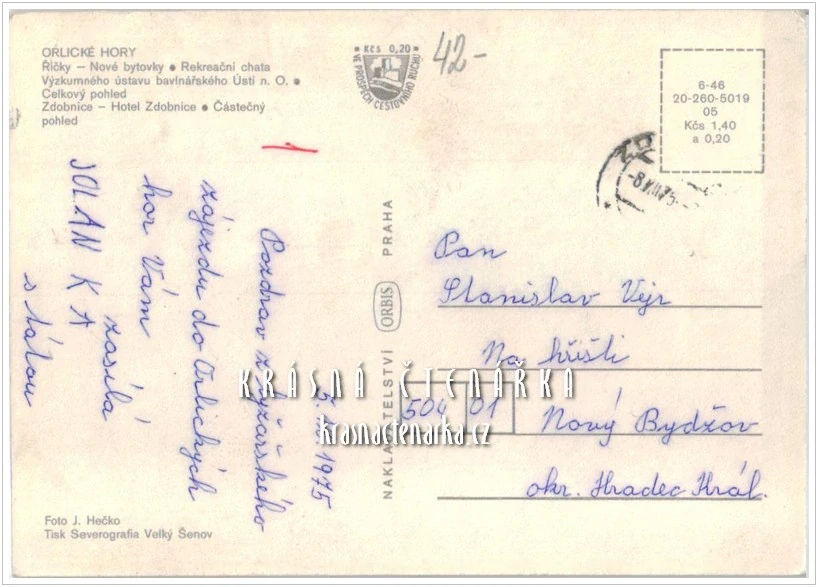 ORLICKÉ HORY
Říčky – Nové bytovky ● Rekreační chata
Výzkumného ústavu bavlnářského Ústí n. O. ●
Celkový pohled
Zdobnice – Hotel Zdobnice ● Částečný
pohled
Kčs 0,20
VE PROSPĚCH CESTOVNÍHO RUCHU
42-
6-46
20-260-5019
05
Kčs 1,40
a 0,20
1975
Pozdrav z lyžařského
zájezdu do Orlických
hor Vám
zasílá
JOLANKA
s tátou
NAKLADATELSTVÍ ORBIS PRAHA
Pan
Stanislav Vejr
Na hřišti
504 01 Nový Bydžov
okr. Hradec Král.
KRÁSNÁ ČTENÁŘKA
krasnactenarka.cz
Foto J. Hečko
Tisk Severografia Velký Šenov